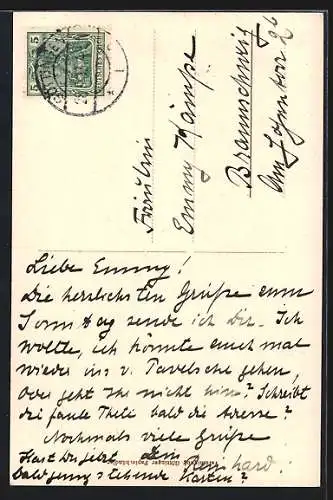 5 5
Fräulein
Emmy Kämpe
Braunschweig
Am Hohentor 26
Liebe Emmy!
Die herrlichsten Grüße zum
Sonntag sende ich Dir. Ich
wollte, ich könnte auch mal
wieder ins v. Pavelsche gehen,
Oder geht Ihr nicht hin? Schreibt
die faule Thili bald die Adresse?
Nochmals viele Grüße
Hast Du jetzt Dein Bernhard.
bald genug lebende Karten?